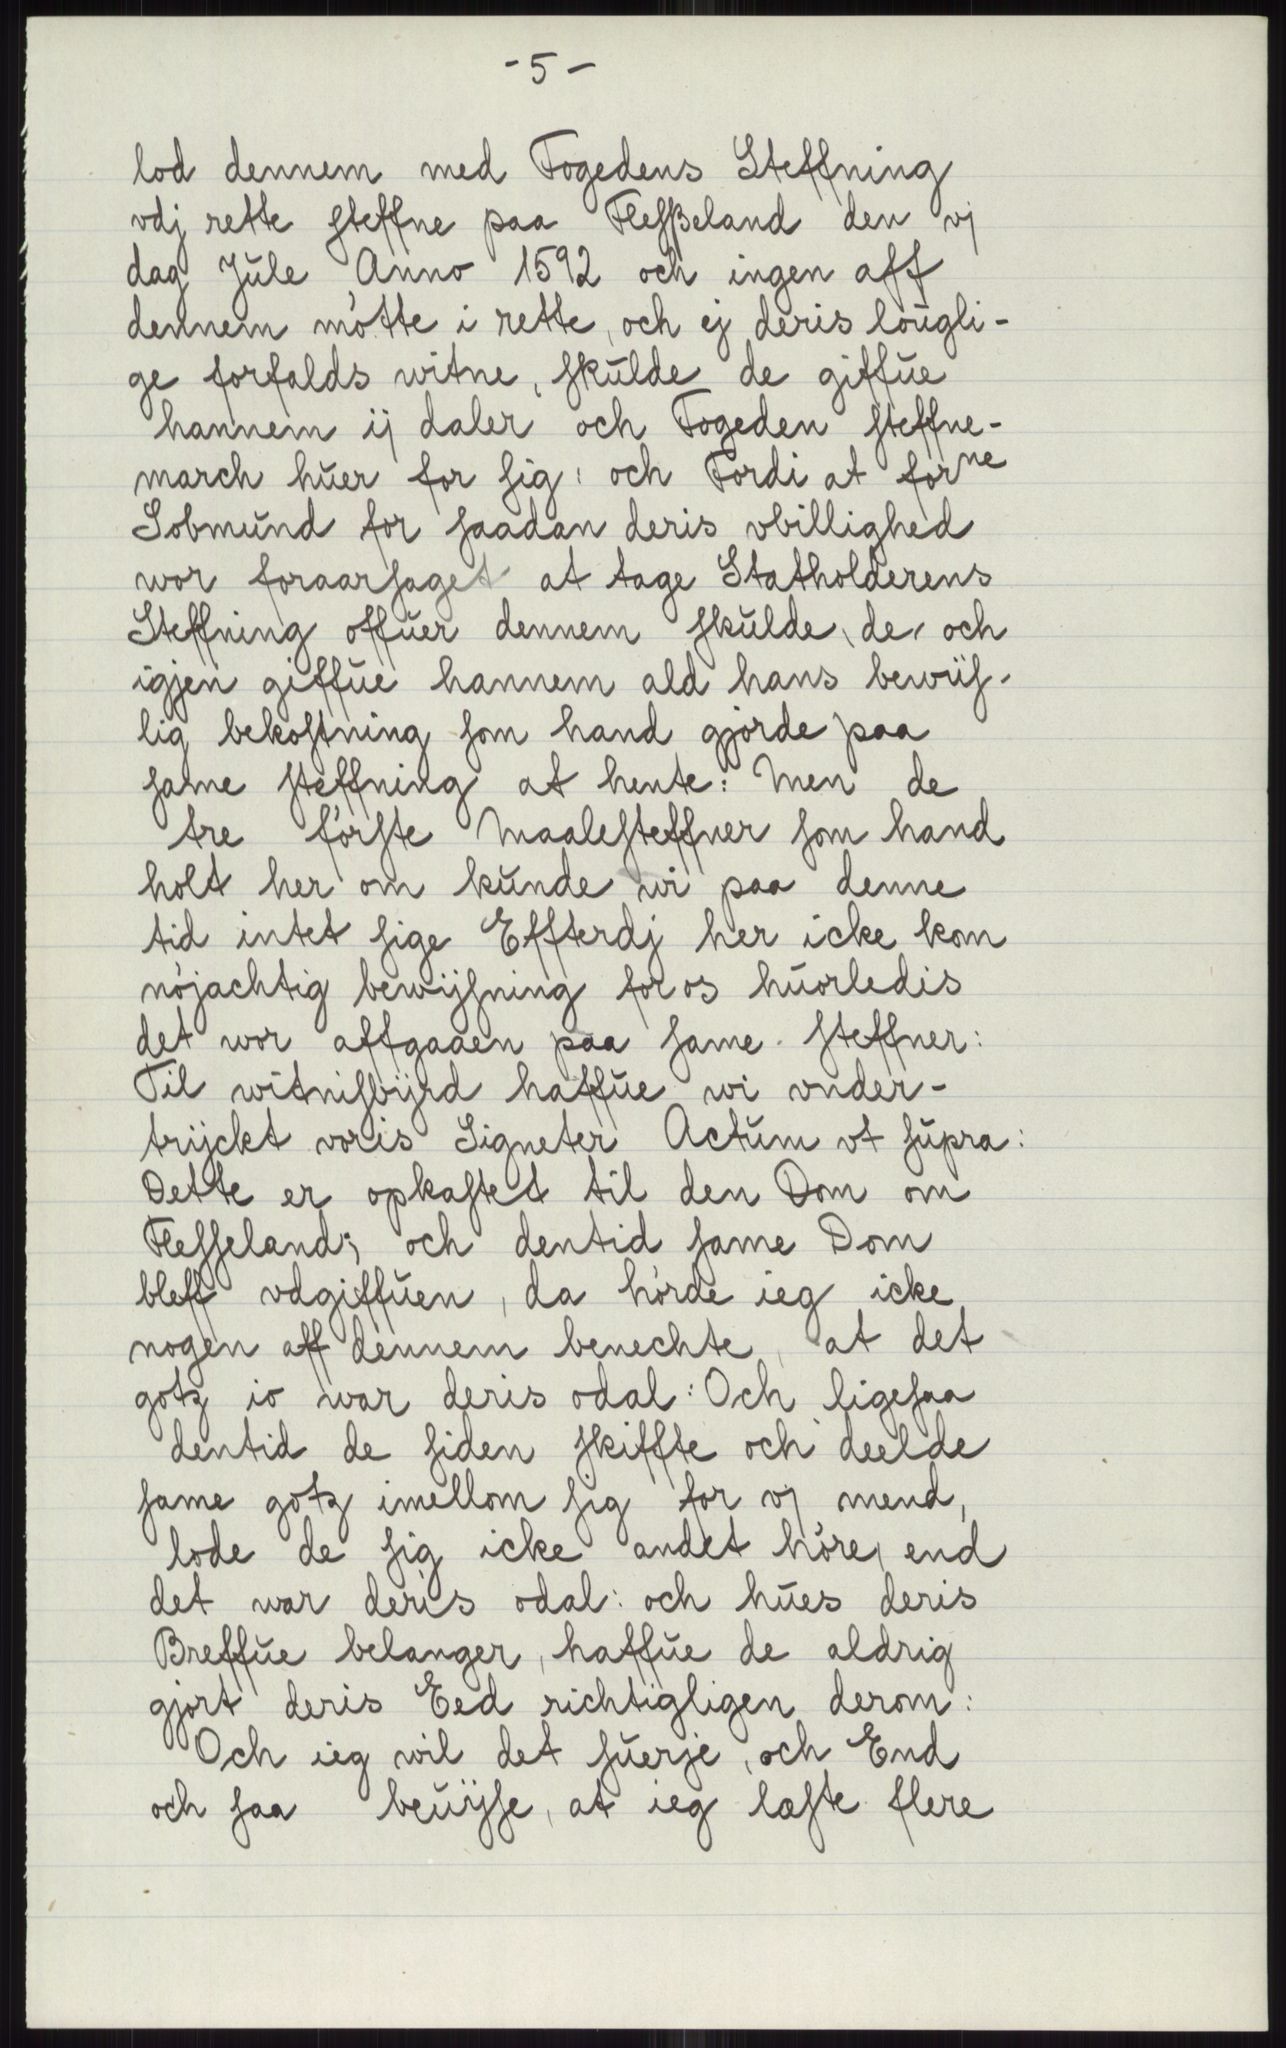 -5-
lod dennem med Fogedens Steffning
vdj rette steffne paa Flesßeland den vj
dag Jule Anno 1592 och ingen aff
dennem mötte i rette, och ej deris lougli-
ge forfalds witne, skulde de giffue
hannem ij daler och Fogeden steffne-
march huer for sig: och Fordi at forne
Sobmund for saadan deris vbillighed
wor foraarsaget at tage Statholderens
Steffning offuer dennem skulde, de, och
igjen giffue hannem ald hans bewiis-
lig bekostning som hand gjorde paa
same steffning at hente: Men de
tre förste Maalesteffner som hand
holt her om kunde wi paa denne
tid intet sige Effterdj her icke kom
nöjachtig bewijsning for os huorledis
det wor affgaaen paa same steffner:
Til witnisbyrd haffue wi vnder-
tryckt voris Signeter Actum vt supra:
Dette er opkastet til den Dom om
Flesseland; och dentid same Dom
bleff vdgiffuen, da hörde ieg icke
nogen aff dennem benechte, at det
gotz io war deris odal: Och ligesaa
dentid de siden skiffte och deelde
same gotz imellom sig for vj mend,
lode de sig icke andet höre, end
det war deris odal: och hues deris
Breffue belanger, haffue de aldrig
gjort deris Eed richtigligen derom:
Och ieg wil det suerje, och End
och saa beuijse, at ieg læste flere